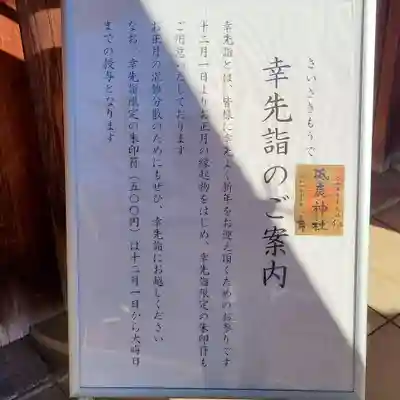 さいさきもうで
幸先詣のご案内
幸先詣とは、皆様に幸先よく新年をお迎え頂くためのお参りです
十二月一日よりお正月の縁起物をはじめ、幸先詣限定の朱印符も
ご用意いたしております
お正月の混雑分散のためにもぜひ、幸先詣にお越しください
なお、幸先詣限定の朱印符(五〇〇円)は十二月一日から大晦日
までの授与となります
神社